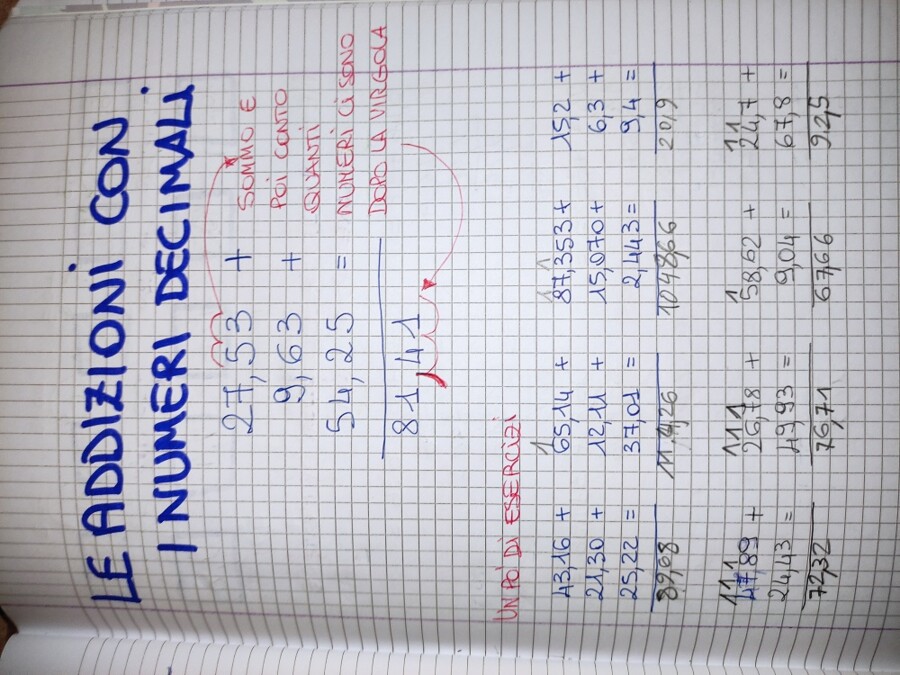 LE ADDIZIONI CON
I NUMERI DECIMALI
27,53 +
9,63 +
54,25 =
81,41
SOMMO E
POI CONTO
QUANTI
NUMERI CI SONO
DOPO LA VIRGOLA
UN PO' DI ESERCIZI
43,16 +
21,30 +
25,22 =
1
65,14 +
12,11 +
37,01 =
1 1
87,353 +
15,070 +
2,443 =
104,866
15,2 +
6,3 +
9,4 =
20,9
1 1 1
47,89 +
24,43 =
72,32
1 1 1
26,78 +
49,93 =
76,71
1
58,62 +
9,04 =
67,66
1 1
24,7 +
67,8 =
92,5